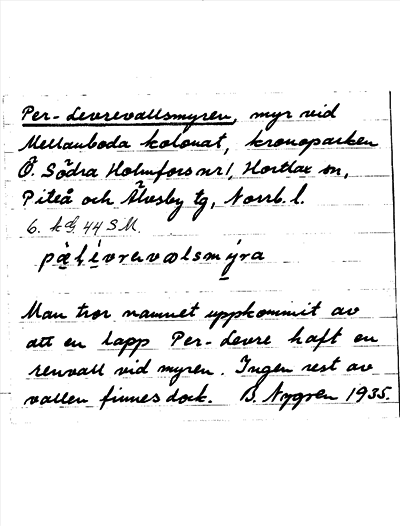 Per-Levrevallsmyren, myr vid
Mellanboda kolonat, kronoparken
Ö. Södra Holmfors nr 1, Hortlax sn,
Piteå och Älvsby tg, Norrb. l.
6. 44 SM.
pæ̀lívrævalsmýra
Man tror namnet uppkommit av
att en lapp Per-Levre haft en
renvall vid myren. Ingen rest av
vallen finnes dock. B. Nygren 1935.